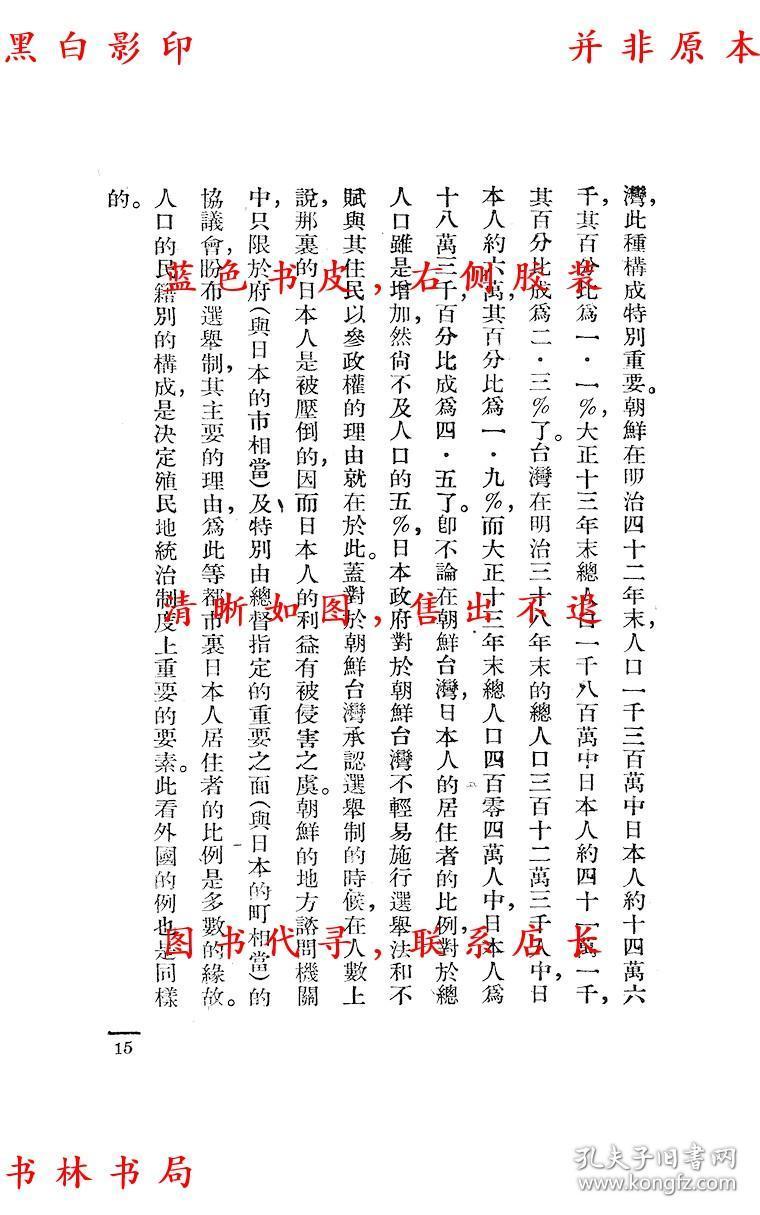 黑白影印
并非原本
灣，此種構成特別重要。朝鮮在明治四十二年末，人口一千三百萬中日本人約十四萬六
千，其百分比爲一·一%，大正十三年末總人口一千八百萬中日本人約四十一萬一千，
其百分比成爲二·三%了。台灣在明治三十八年末的總人口三百十二萬三千人中，日
本人約六萬，其百分比爲一·九%，而大正十三年末總人口四百零四萬人中，日本人爲
十八萬三千，百分比成爲四·五了。卽不論在朝鮮台灣，日本人的居住者的比例，對於總
人口雖是增加，然尙不及人口的五%，日本政府對於朝鮮台灣不輕易施行選舉法和不
賦與其住民以參政權的理由就在於此。蓋對於朝鮮台灣承認選舉制的時候，在人數上
說，那裏的日本人是被壓倒的，因而日本人的利益有被侵害之虞。朝鮮的地方諮問機關
中，只限於府（與日本的市相當）及特別由總督指定的重要之面（與日本的町相當）的
協議會，盼布選舉制，其主要的理由，爲此等都市裏日本人居住者的比例是多數的緣故。
人口的民籍別的構成，是決定殖民地統治制度上重要的要素。此看外國的例也是同樣
的。
蓝色书皮，右侧胶装
清晰如图，售出不退
图书代寻，联系店长
15
书林书局
孔夫子旧书网
www.kongfz.com